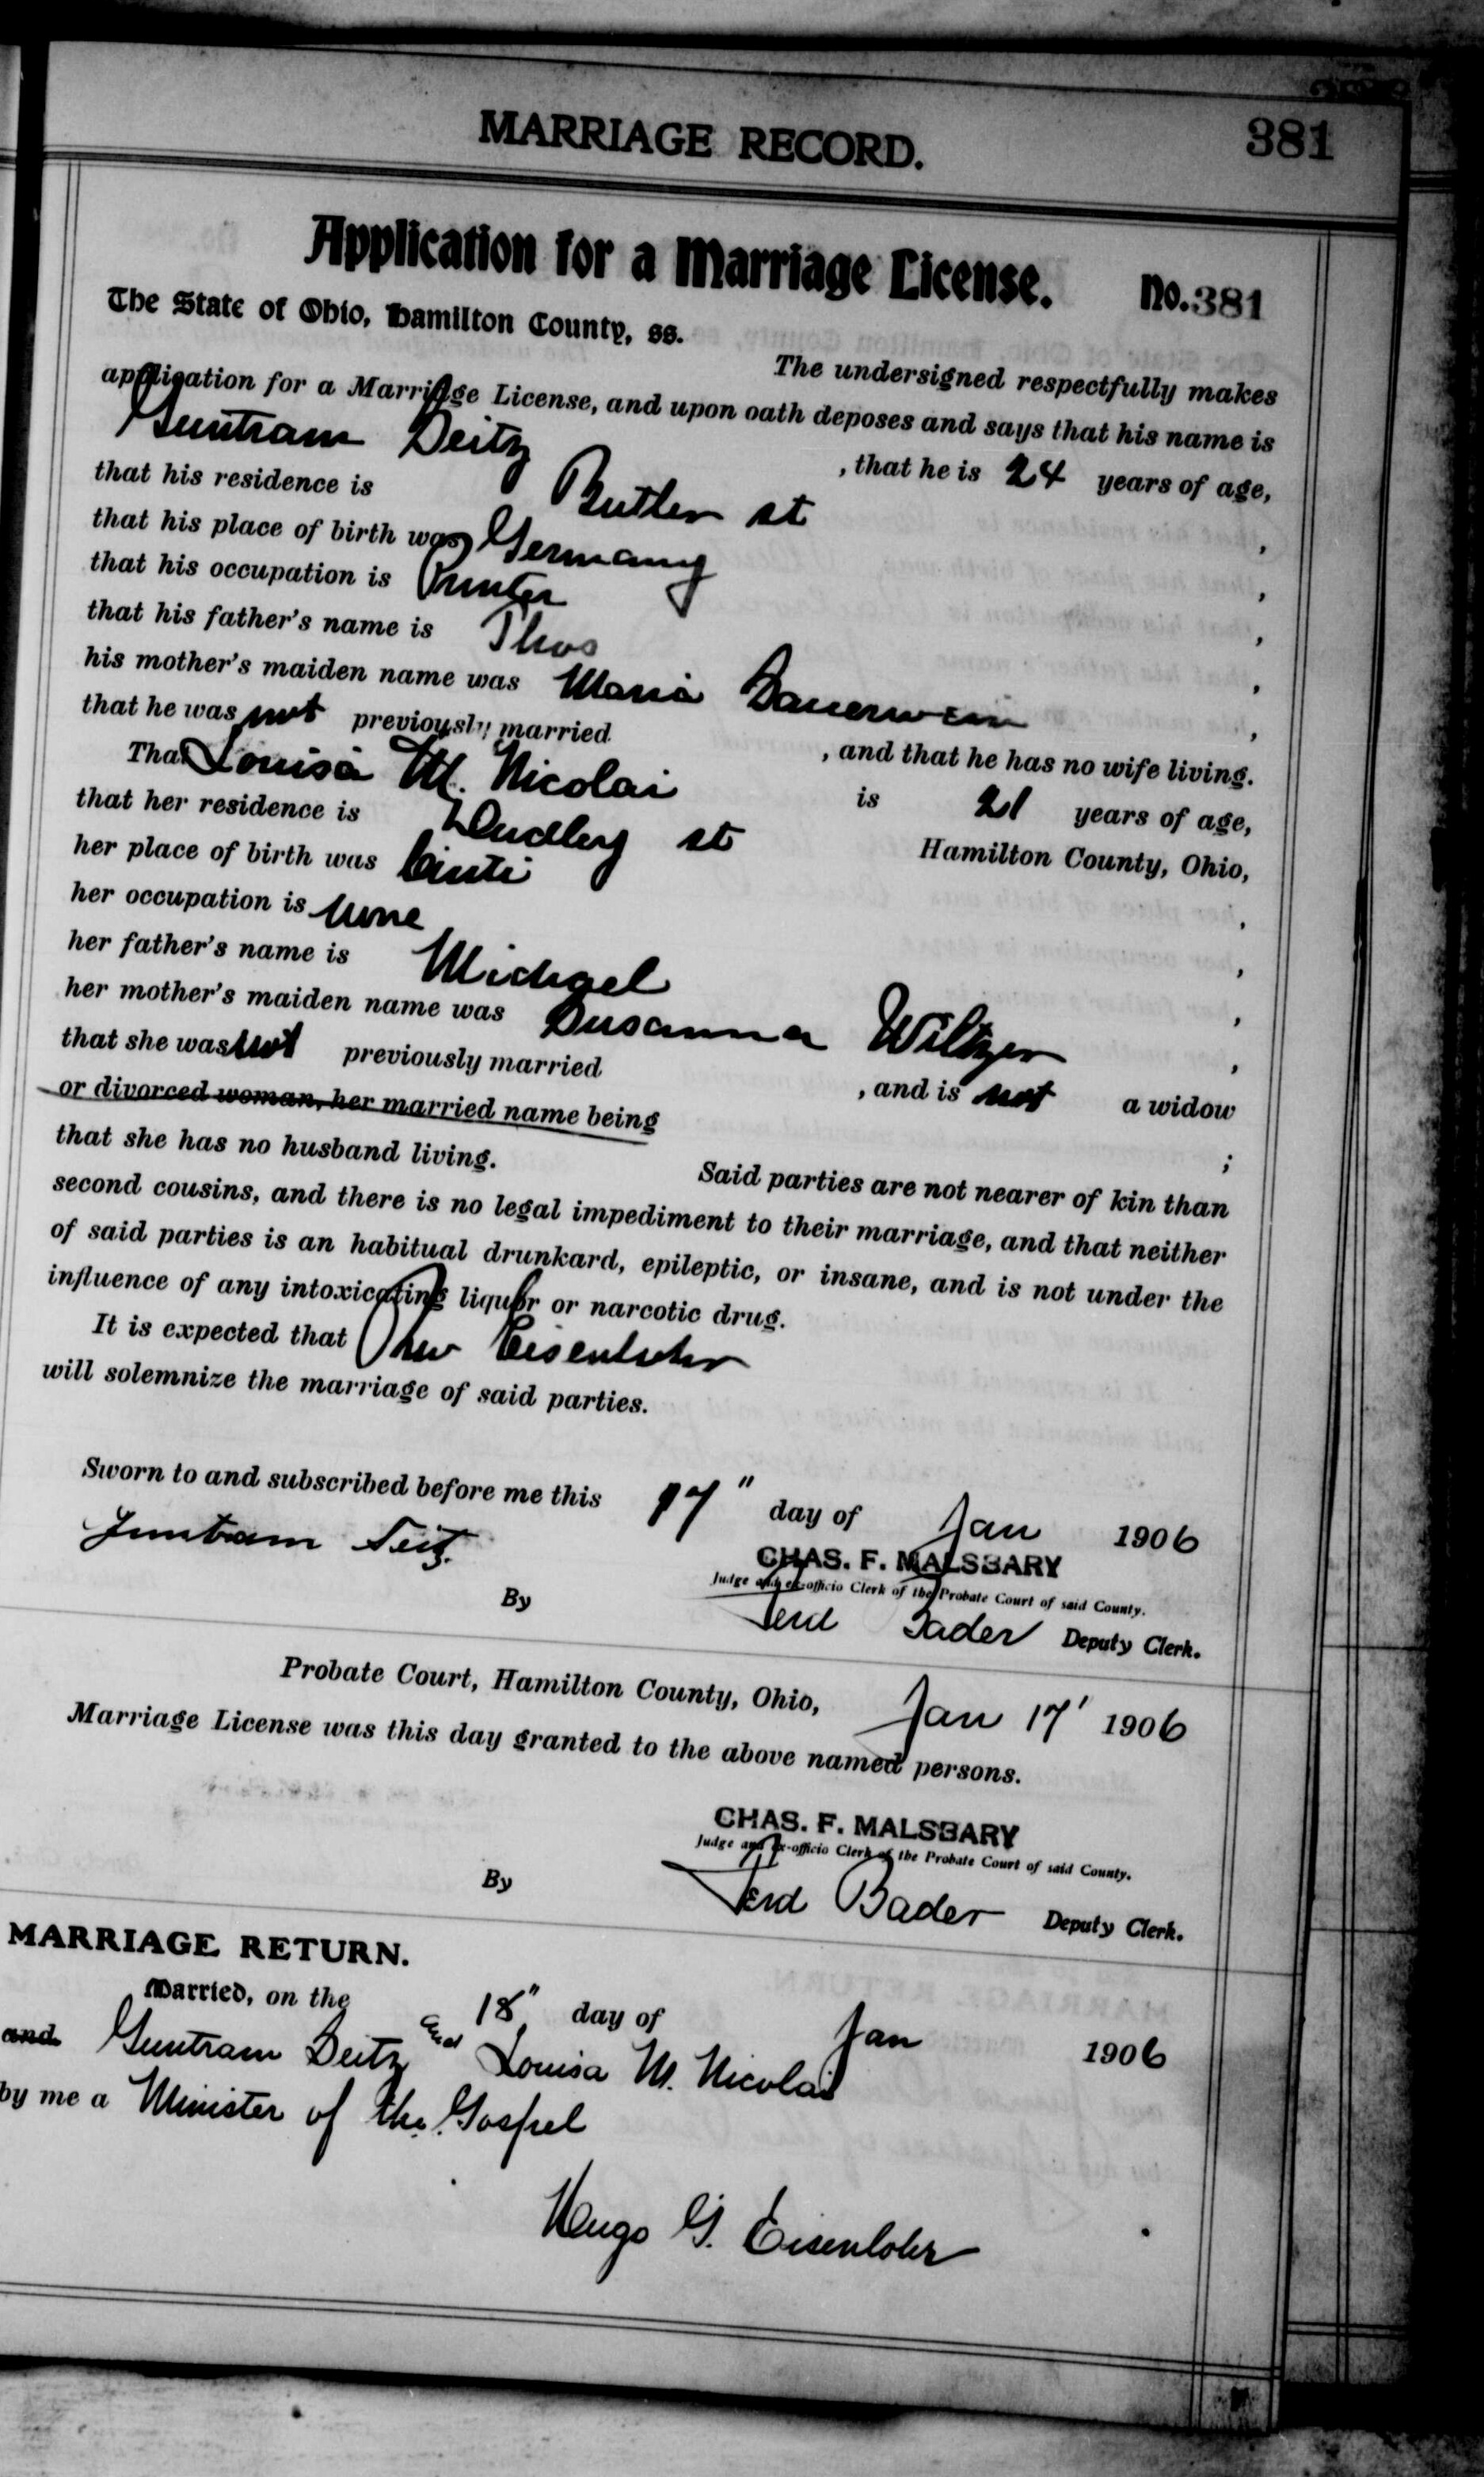 MARRIAGE RECORD. 381
Application for a Marriage License. No. 381
The State of Ohio, Hamilton County, ss.
The undersigned respectfully makes
application for a Marriage License, and upon oath deposes and says that his name is
Guntram Deitz , that he is 24 years of age,
that his residence is Butler st ,
that his place of birth was Germany ,
that his occupation is Printer ,
that his father's name is Thos ,
his mother's maiden name was Maria Sauerwein ,
that he was not previously married , and that he has no wife living.
That Louisa M. Nicolai is 21 years of age,
that her residence is Dudley st Hamilton County, Ohio,
her place of birth was Cinti ,
her occupation is None ,
her father's name is Michael ,
her mother's maiden name was Susanna Wiltzer ,
that she was not previously married , and is not a widow
or divorced woman, her married name being ;
that she has no husband living. Said parties are not nearer of kin than
second cousins, and there is no legal impediment to their marriage, and that neither
of said parties is an habitual drunkard, epileptic, or insane, and is not under the
influence of any intoxicating liquor or narcotic drug.
It is expected that Rev Eisenlohr
will solemnize the marriage of said parties.
Sworn to and subscribed before me this 17" day of Jan 1906
Guntram Deitz
CHAS. F. MALSBARY
Judge and ex-officio Clerk of the Probate Court of said County.
By Ferd Bader Deputy Clerk.
Probate Court, Hamilton County, Ohio, Jan 17' 1906
Marriage License was this day granted to the above named persons.
CHAS. F. MALSBARY
Judge and ex-officio Clerk of the Probate Court of said County.
By Ferd Bader Deputy Clerk.
MARRIAGE RETURN.
Married, on the 18" day of Jan 1906
and Guntram Deitz and Louisa M. Nicolai
by me a Minister of the Gospel
Hugo G. Eisenlohr